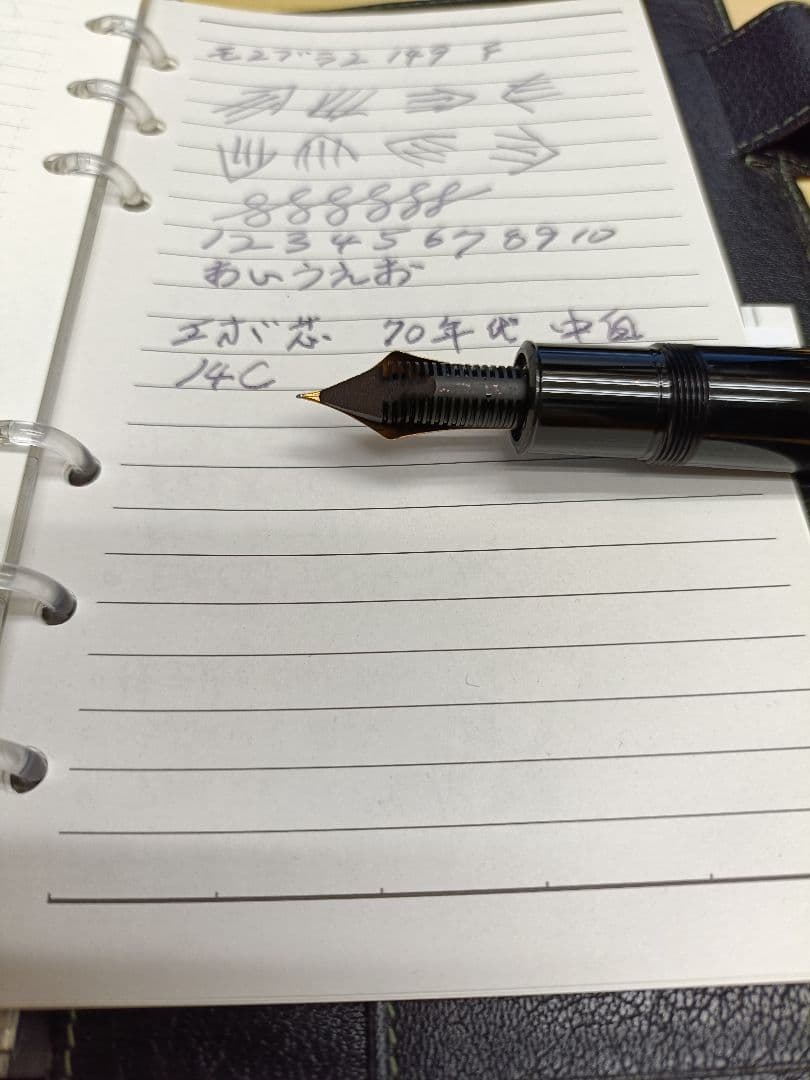 モンブラン 149 F
1 2 3 4 5 6 7 8 9 10
あいうえお
エボ芯 70年代 中白
14C